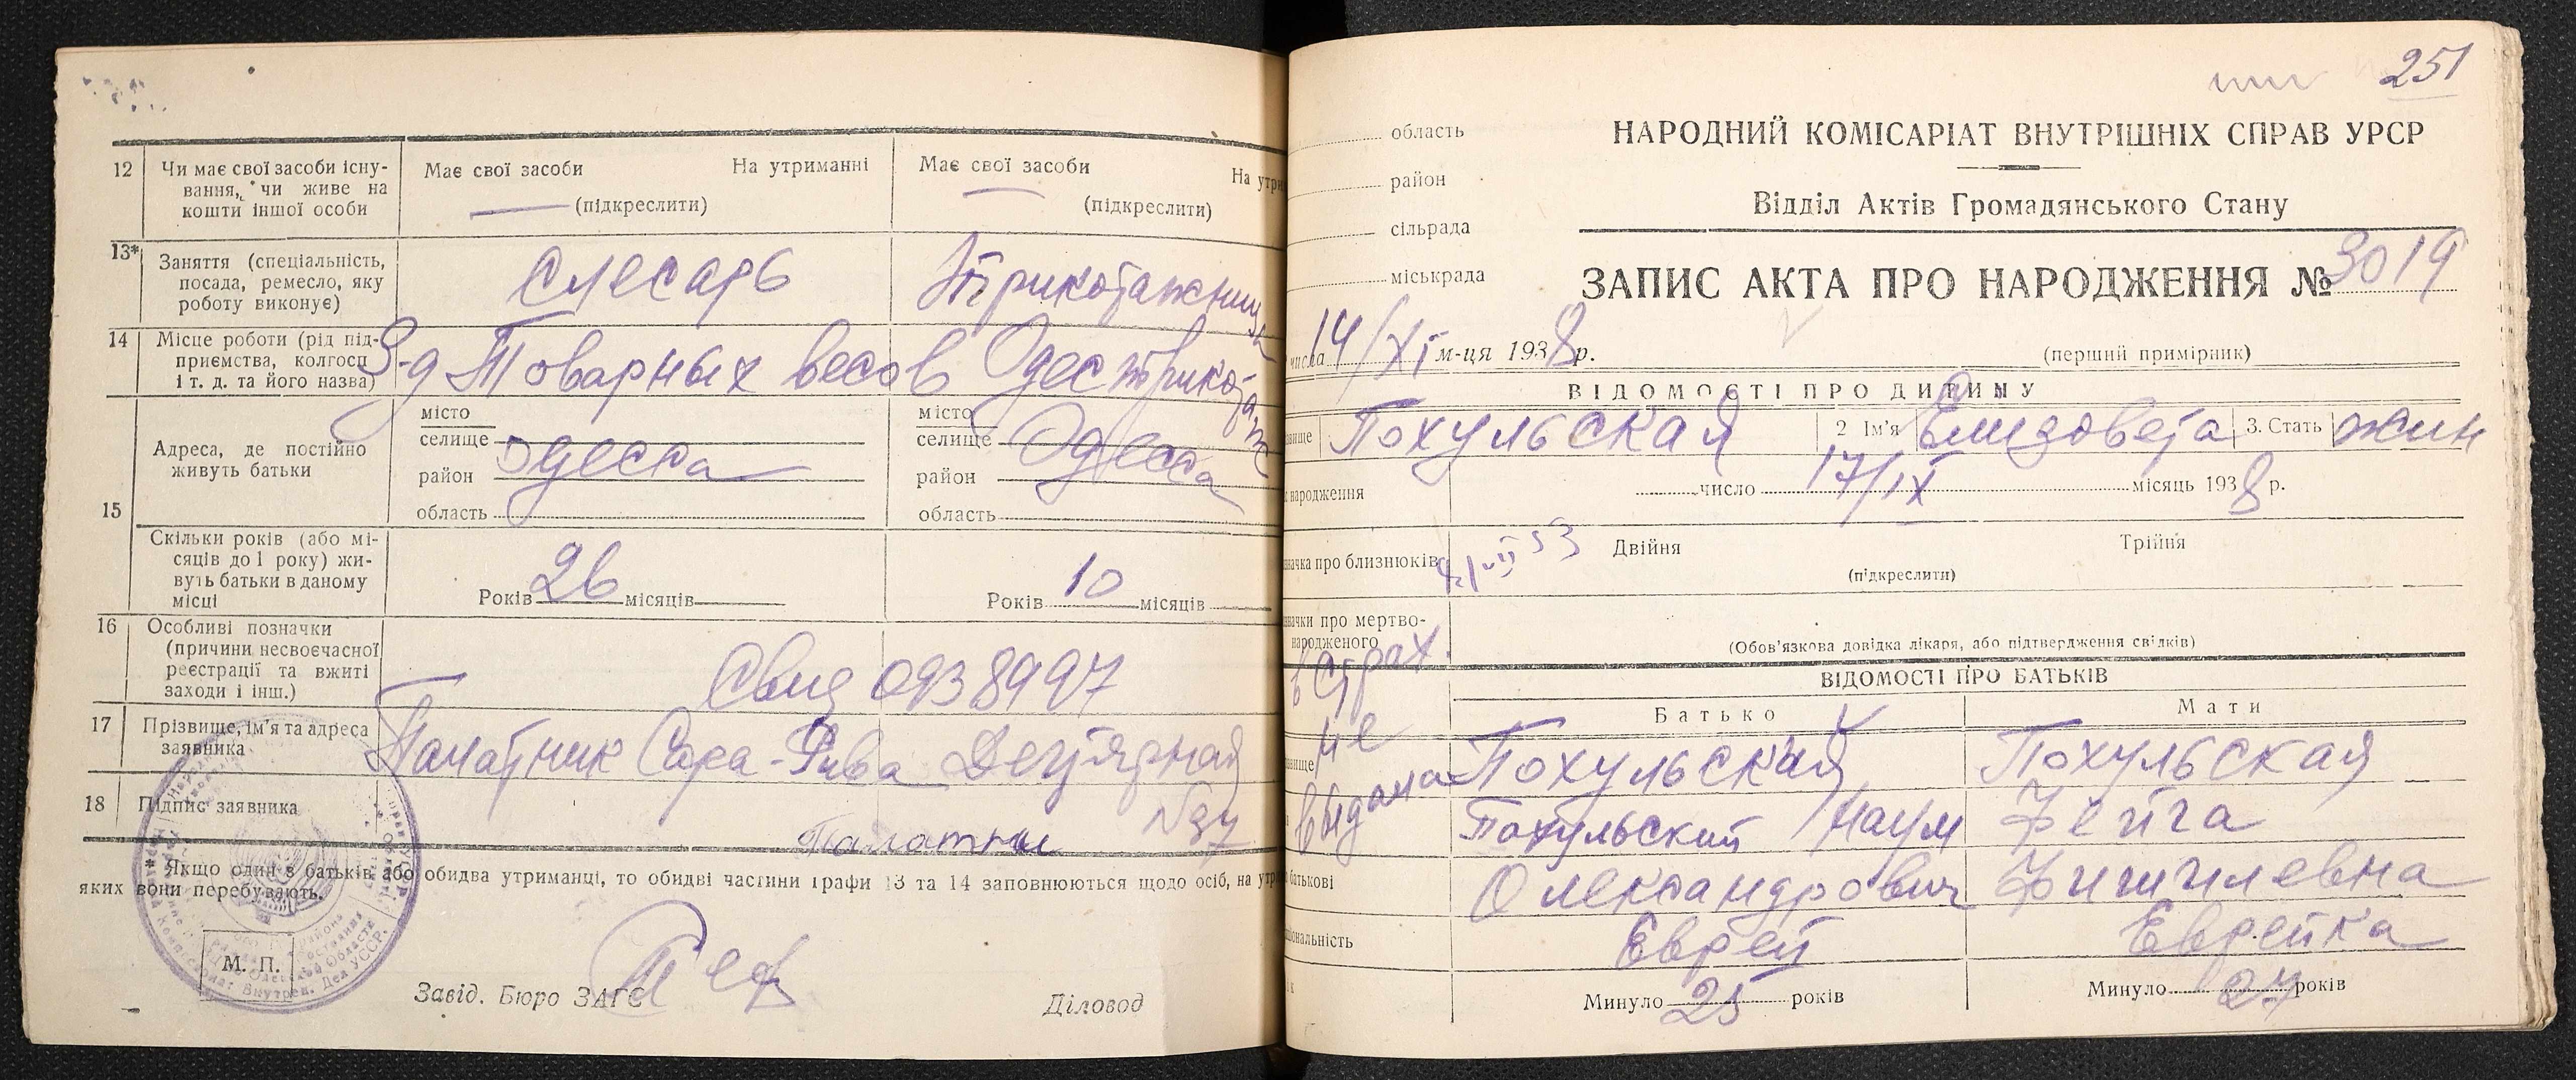 12 Чи має свої засоби існу-
вання, чи живе на
кошти іншої особи
Має свої засоби На утриманні
(підкреслити)
Має свої засоби На утри
(підкреслити)
13* Заняття (спеціальність,
посада, ремесло, яку
роботу виконує)
Слесарь
Трикотажница
14 Місце роботи (рід під-
приємства, колгосп
і т. д. та його назва)
З-д Товарных весов
Одестрикотаж
15 Адреса, де постійно
живуть батьки
місто
селище
район
область
Одесса
місто
селище
район
область
Одесса
Скільки років (або мі-
сяців до 1 року) жи-
вуть батьки в даному
місці
Років 26 місяців
Років 10 місяців
16 Особливі позначки
(причини несвоєчасної
реєстрації та вжиті
заходи і інш.)
Свид 0938997
17 Прізвище, ім'я та адреса
заявника
Палатник Сара-Рива Дегтярная
N 37
18 Підпис заявника
Палатник
* Якщо один з батьків або обидва утриманці, то обидві частини графи 13 та 14 заповнюються щодо осіб, на утр
яких вони перебувають.
М. П.
Завід. Бюро ЗАГС
Діловод
251
область
район
сільрада
міськрада
НАРОДНИЙ КОМІСАРІАТ ВНУТРІШНІХ СПРАВ УРСР
Відділ Актів Громадянського Стану
ЗАПИС АКТА ПРО НАРОДЖЕННЯ № 3019
числа 14/XI м-ця 1938 р.
(перший примірник)
ВІДОМОСТІ ПРО ДИТИНУ
вище Похульская 2 Ім'я Елизовета 3. Стать жин
народження число 17/IX місяць 1938 р.
значка про близнюків
Двійня Трійня
(підкреслити)
значки про мертво-
народженого
(Обов'язкова довідка лікаря, або підтвердження свідків)
в страх.
не
выдана
ВІДОМОСТІ ПРО БАТЬКІВ
Батько Мати
вище Похульский Похульская
Похульский Наум Фейга
батькові Олександрович Фишилевна
ціональність Еврей Еврейка
Минуло 25 років Минуло 27 років